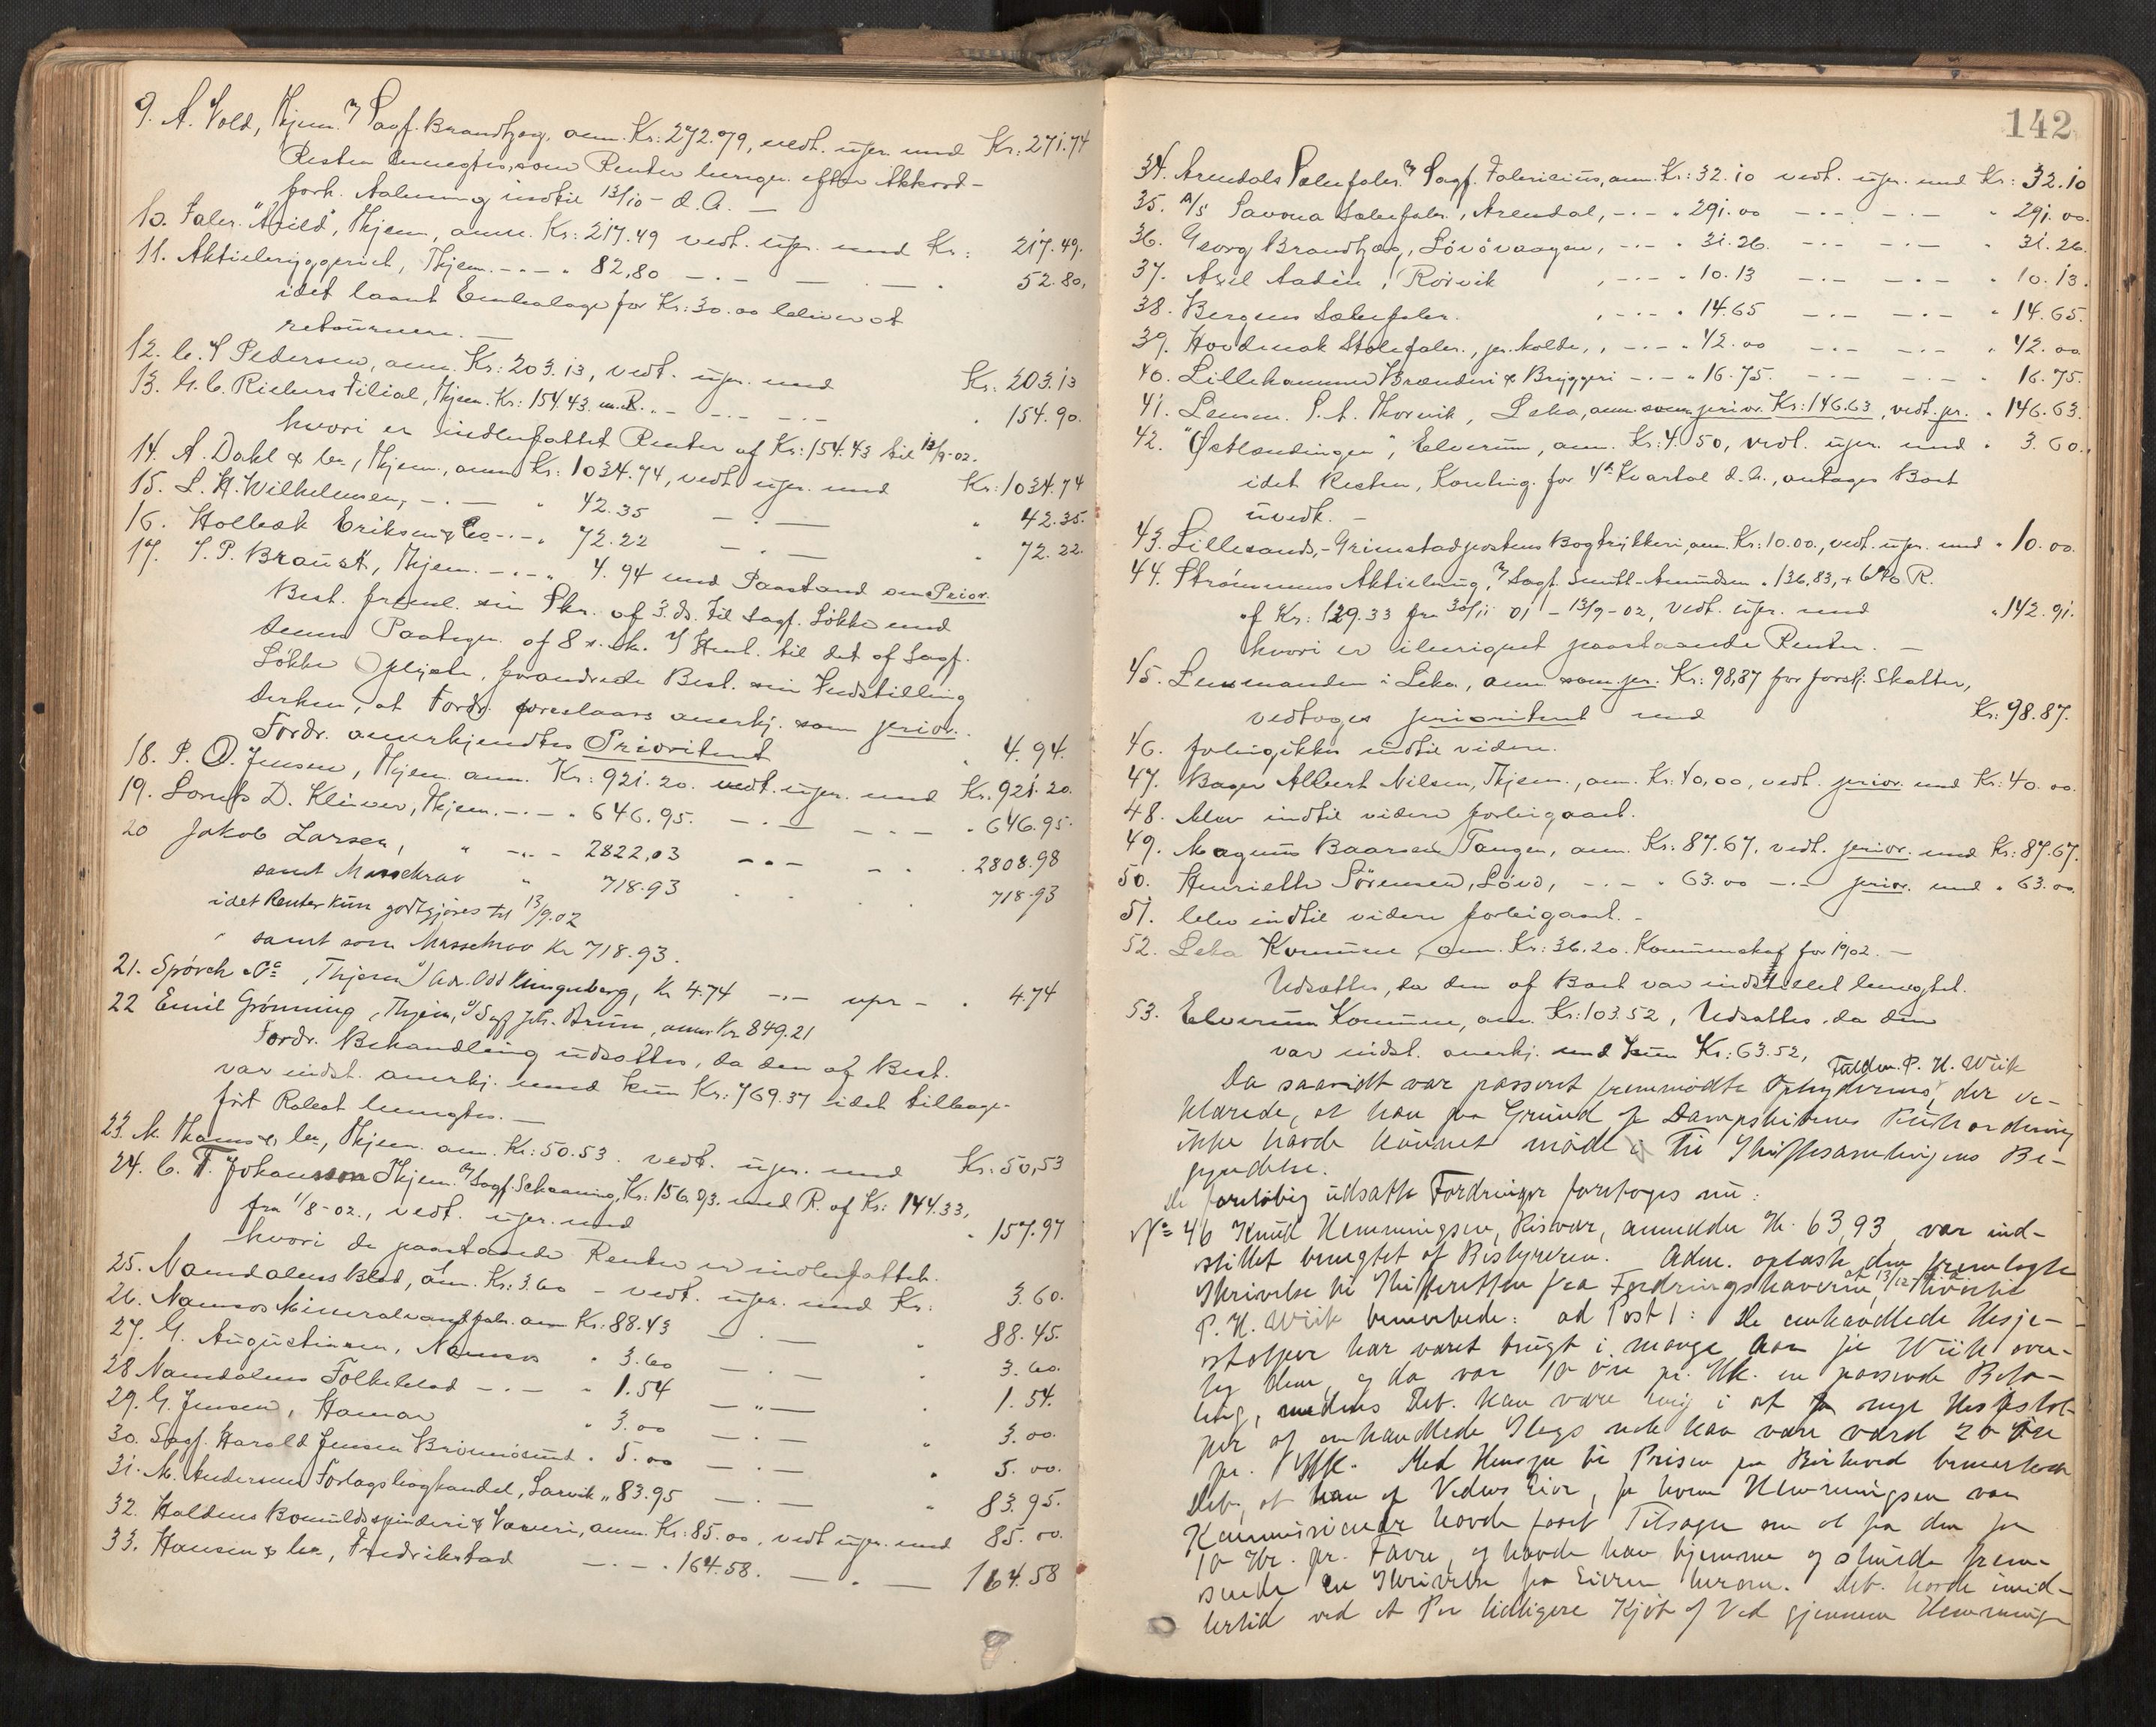 9. A. Vold, Thjem. v/ Sagf. Brandtzæg, anm. Kr: 272.79, vedt. upr. med Kr: 271.74
Resten benegtes, som Renter bereg. efter Akkord-
forh. Aabning indtil 13/10 - d. A. -
10. Fabr. "Arild", Thjem, anm. Kr: 217.49 vedt. upr. med Kr: 217.49.
11. Aktiebryggeriet, Thjem. -.-. " 82,80 -.- - . - . 52.80,
idet laant Emballage for Kr: 30.00 bliver at
returnere. -
12. C. S Pedersen, anm. Kr: 203.13, vedt. upr. med Kr. 203.13
13. G. C. Riebers Filial, Thjem. Kr: 154.43 m. R. . - -.- -.- " 154.90.
hvori er indbefattet Renter af Kr: 154.43 til 13/9-02.
14. A. Dahl & Co, Thjem, anm Kr: 1034.74, vedt. upr. med Kr: 1034.74
15. L. H. Wilhelmsen, -.- " 42.35 -.- " 42.35.
16. Holbæk Eriksen & Co -.-. 72.22 -.- " 72.22.
17. J. P. Braust, Thjem. -.-. 4.94 med Paastand om Prior.
Best. freml. sin Skr. af 3. ds. til Sagf. Løkke med
denns Paategn. af 8 s. M. I Henh. til det af Sagf.
Løkke Oplyste, forandrede Best. sin Indstilling
derhen, at Fordr. foreslaaes anerkj. som prior.
Fordr. anerkjendtes Prioritent " 4.94.
18. P. O. Jensen, Thjem. anm. Kr: 921.20. vedt. upr. med Kr. 921.20.
19. Lorents D. Klüver, Thjem. -.- . 646.95. -.- -.- . 646.95.
20 Jakob Larsen, " -.- 2822,03 -.- - . . 2808.98
samt Massekrav " 718.93 . . . 718.93
idet Renter kun godtgjøres til 13/9.02
" samt som Massekrav Kr 718.93.
21. Spørck & Co, Thjem v/ Adv. Odd Klingenberg, Kr 4.74 -.- upr - . 4.74
22 Emil Grønning, Thjem, v/ Sagf Joh. Brun, anm Kr 849.21
Fordr. Behandling udsattes, da den af Best.
var indst. anerkj. med kun Kr: 769.37 idet tilbage-
ført Rabat benegtes. -
23. M. Thams & Co, Thjem. anm. Kr: 50.53. vedt. upr. med Kr: 50,53
24. C. F. Johansson Thjem. v/ Sagf. Schaaning, Kr: 156.93. med R. af Kr: 144.33,
fra 1/8-02., vedt. upr. med . 157.97
hvori de paastaaede Renter er indbefattet.
25. Namdalens Blad, anm. Kr: 3.60 - vedt. upr. med Kr: 3.60.
26. Namsos Mineralvandfabr. anm Kr: 88.43 -.- " 88.45.
27. G. Augustinsen, Namsos " 3.60 -.- " 3.60.
28 Namdalens Folkeblad -.- " 1.54 -"- . 1.54.
29. G. Jensen, Hamar " 3.00 -.- " 3.00.
30. Sagf. Harald Jensen Brønnøsund . 5.00 -.- . 5.00.
31. M. Andersens Forlagsboghandel, Larvik " 83.95 -.- " 83.95.
32. Haldens Bomuldsspinderi & Væveri, anm. Kr: 85.00, vedt upr. med 85.00.
33. Hansen & Co, Fredrikstad -.-. 164.58. -.- 164.58
142
34. Arendals Sæbefabr. v/ Sagf. Fabricius, anm. Kr: 32.10 vedt. upr. med Kr: 32.10
35. A/S Savona Sæbefabr., Arendal, -.- . 291.00 -.- -.- " 291.00.
36. Georg Brandtzæg, Løvøvaagen, -.- . 31.26. -.- -.- " 31.26.
37. Axel Aadin, Rørvik , -.- . 10.13 -.- -.- " 10.13.
38. Bergens Sæbefabr. , -.- " 14.65 -.- -.- " 14.65.
39. Hovdenak Stolefabr., pr. Molde, , -.- . 42.00 -.- -.- " 42.00.
40. Lillehammer Brænderi & Bryggeri -.- " 16.75. -.- -.- " 16.75.
41. Lensm. P. A. Thorvik, Leka, anm. som prior. Kr: 146.63, vedt. pr. " 146.63.
42. "Østlendingen", Elverum, anm. Kr: 4.50, vedt. upr. med " 3.60.
idet Resten, Konting. for 4de Kvartal d. A., antages Boet
uvedk. -
43. Lillesands,- Grimstadpostens Bogtrykkeri, anm. Kr: 10.00., vedt. upr. med " 10.00.
44. Strømmens Aktiebrug, v/ Sagf. Smitt-Amundsen . 136,83, + 6% R.
af Kr: 129.33 fra 30/11 01 - 13/9-02, vedt. upr. med " 142.91.
hvori er iberegnet paastaaede Renter. -
45. Lensmanden i Leka, anm. som pr. Kr: 98,87 for forskj. Skatter,
vedtoges prioritent med Kr: 98.87.
46. forbigikkes indtil videre.
47. Bager Albert Nilsen, Thjem., anm. Kr: 40,00, vedt. prior. med Kr: 40.00.
48. blev indtil videre forbigaaet.
49. Magnus Baarsen Tangen, anm. Kr: 87.67, vedt. prior. med Kr: 87.67.
50. Henriette Sørensen, Løvø, -.- . 63.00 -.- prior. med . 63.00.
51. blev indtil videre forbigaaet. -
52. Leka Kommune, anm. Kr: 36.20. Kommuneskat for 1902. -
Udsattes, da den af Boet var indstillet benegtet.
53. Elverum Kommune, anm. Kr: 103.52, Udsattes, da den
var indst. anerkj. med kun Kr: 63.52,
Da saavidt var passeret fremmødte Ophyderens, Falden. P. H. Wiik der er-
klærede, at han paa Grund af Dampskibenes Ruteordning
ikke havde kunnet møde til Skiftesamlingens Be-
gyndelse.
De foreløbig udsatte Fordringer foretoges nu:
No 46 Knut Hemmingsen, Risvær, anmeldte Kr. 63,93, var ind-
stillet benegtet af Bestyreren. Adm. oplæste den fremlagte
Skrivelse til Skifteretten fra Fordringshaveren, af 13/12- hvortil
P. H. Wiik bemerkede: ad Post 1: De omhandlede Hesje-
stolper har været brugt i mange Aar før Wiik over-
tog dem, og da var 10 Øre pr. Stk. en passende Beta-
ling, medens Deb. kan være enig i at nye Hesjestol-
per af omhandlede Slags nok kan være værd 20 Øre
pr. Stk. Med Hensyn til Prisen paa Birkeved bemerkede
Deb., at han af Vedens Eier, for hvem Hemmingsen var
Kommissionær havde faaet Tilsagn om at faa den for
10 Kr. pr. Favn, og havde han hjemme og skulde frem-
sende en Skrivelse fra Eieren herom. Deb. havde imid-
lertid ved et Par tidligere Kjøb af Ved gjennem Hemmings